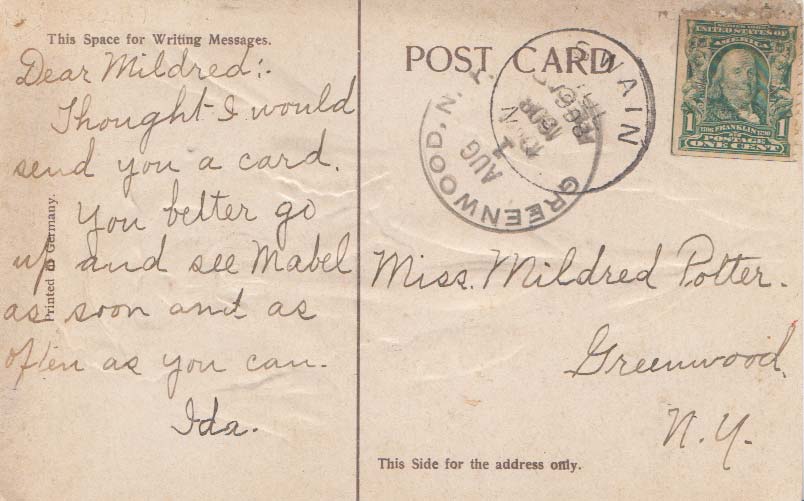 This Space for Writing Messages.
Dear Mildred:-
Thought I would
send you a card.
You better go
up and see Mabel
as soon and as
often as you can.
Ida.
Printed in Germany.
POST CARD
SWAIN
GREENWOOD, N.Y.
AUG
1
UNITED STATES OF
AMERICA
1 1
FRANKLIN
POSTAGE
ONE CENT
Miss. Mildred Potter.
Greenwood,
N.Y.
This Side for the address only.